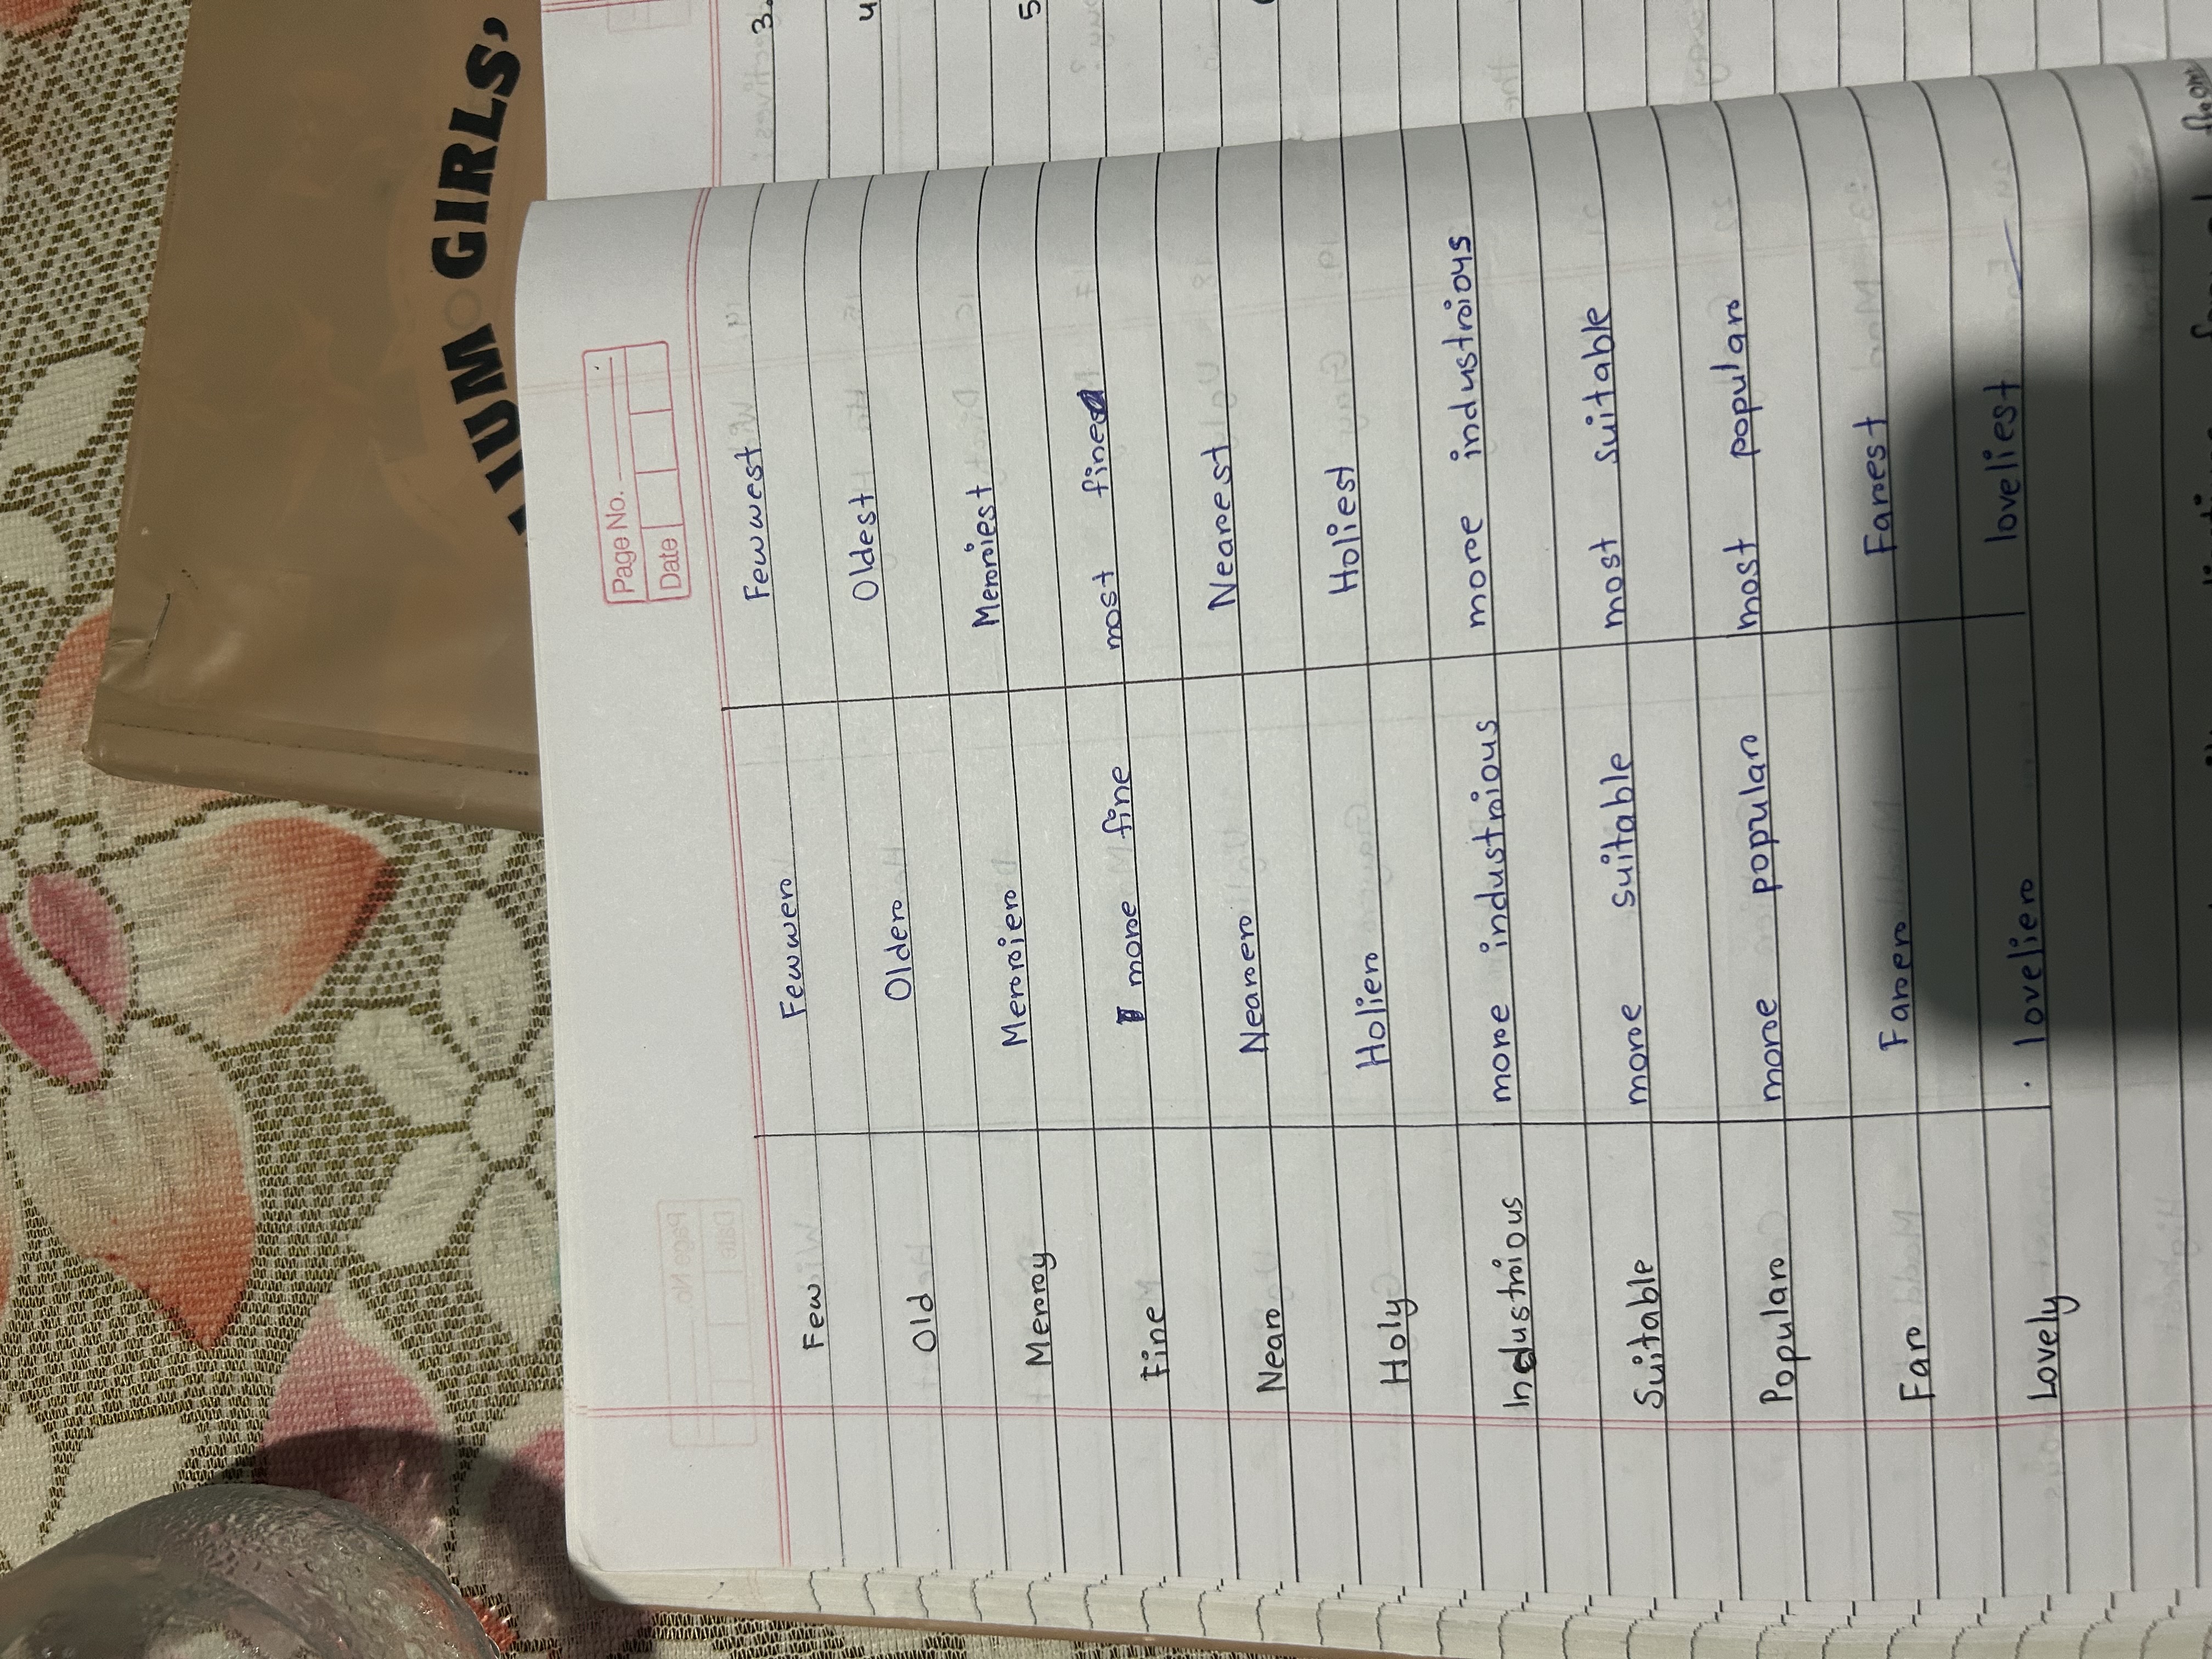 IUM GIRLS'
3.
4
5
Page No.
Date
Few Fewwer Fewwest
Old Older Oldest
Merry Merrier Merriest
Fine more fine most fine
Near Nearer Nearest
Holy Holier Holiest
Industrious more industrious more industrious
Suitable more suitable most suitable
Popular more popular most popular
Far Farer Farest
Lovely lovelier loveliest